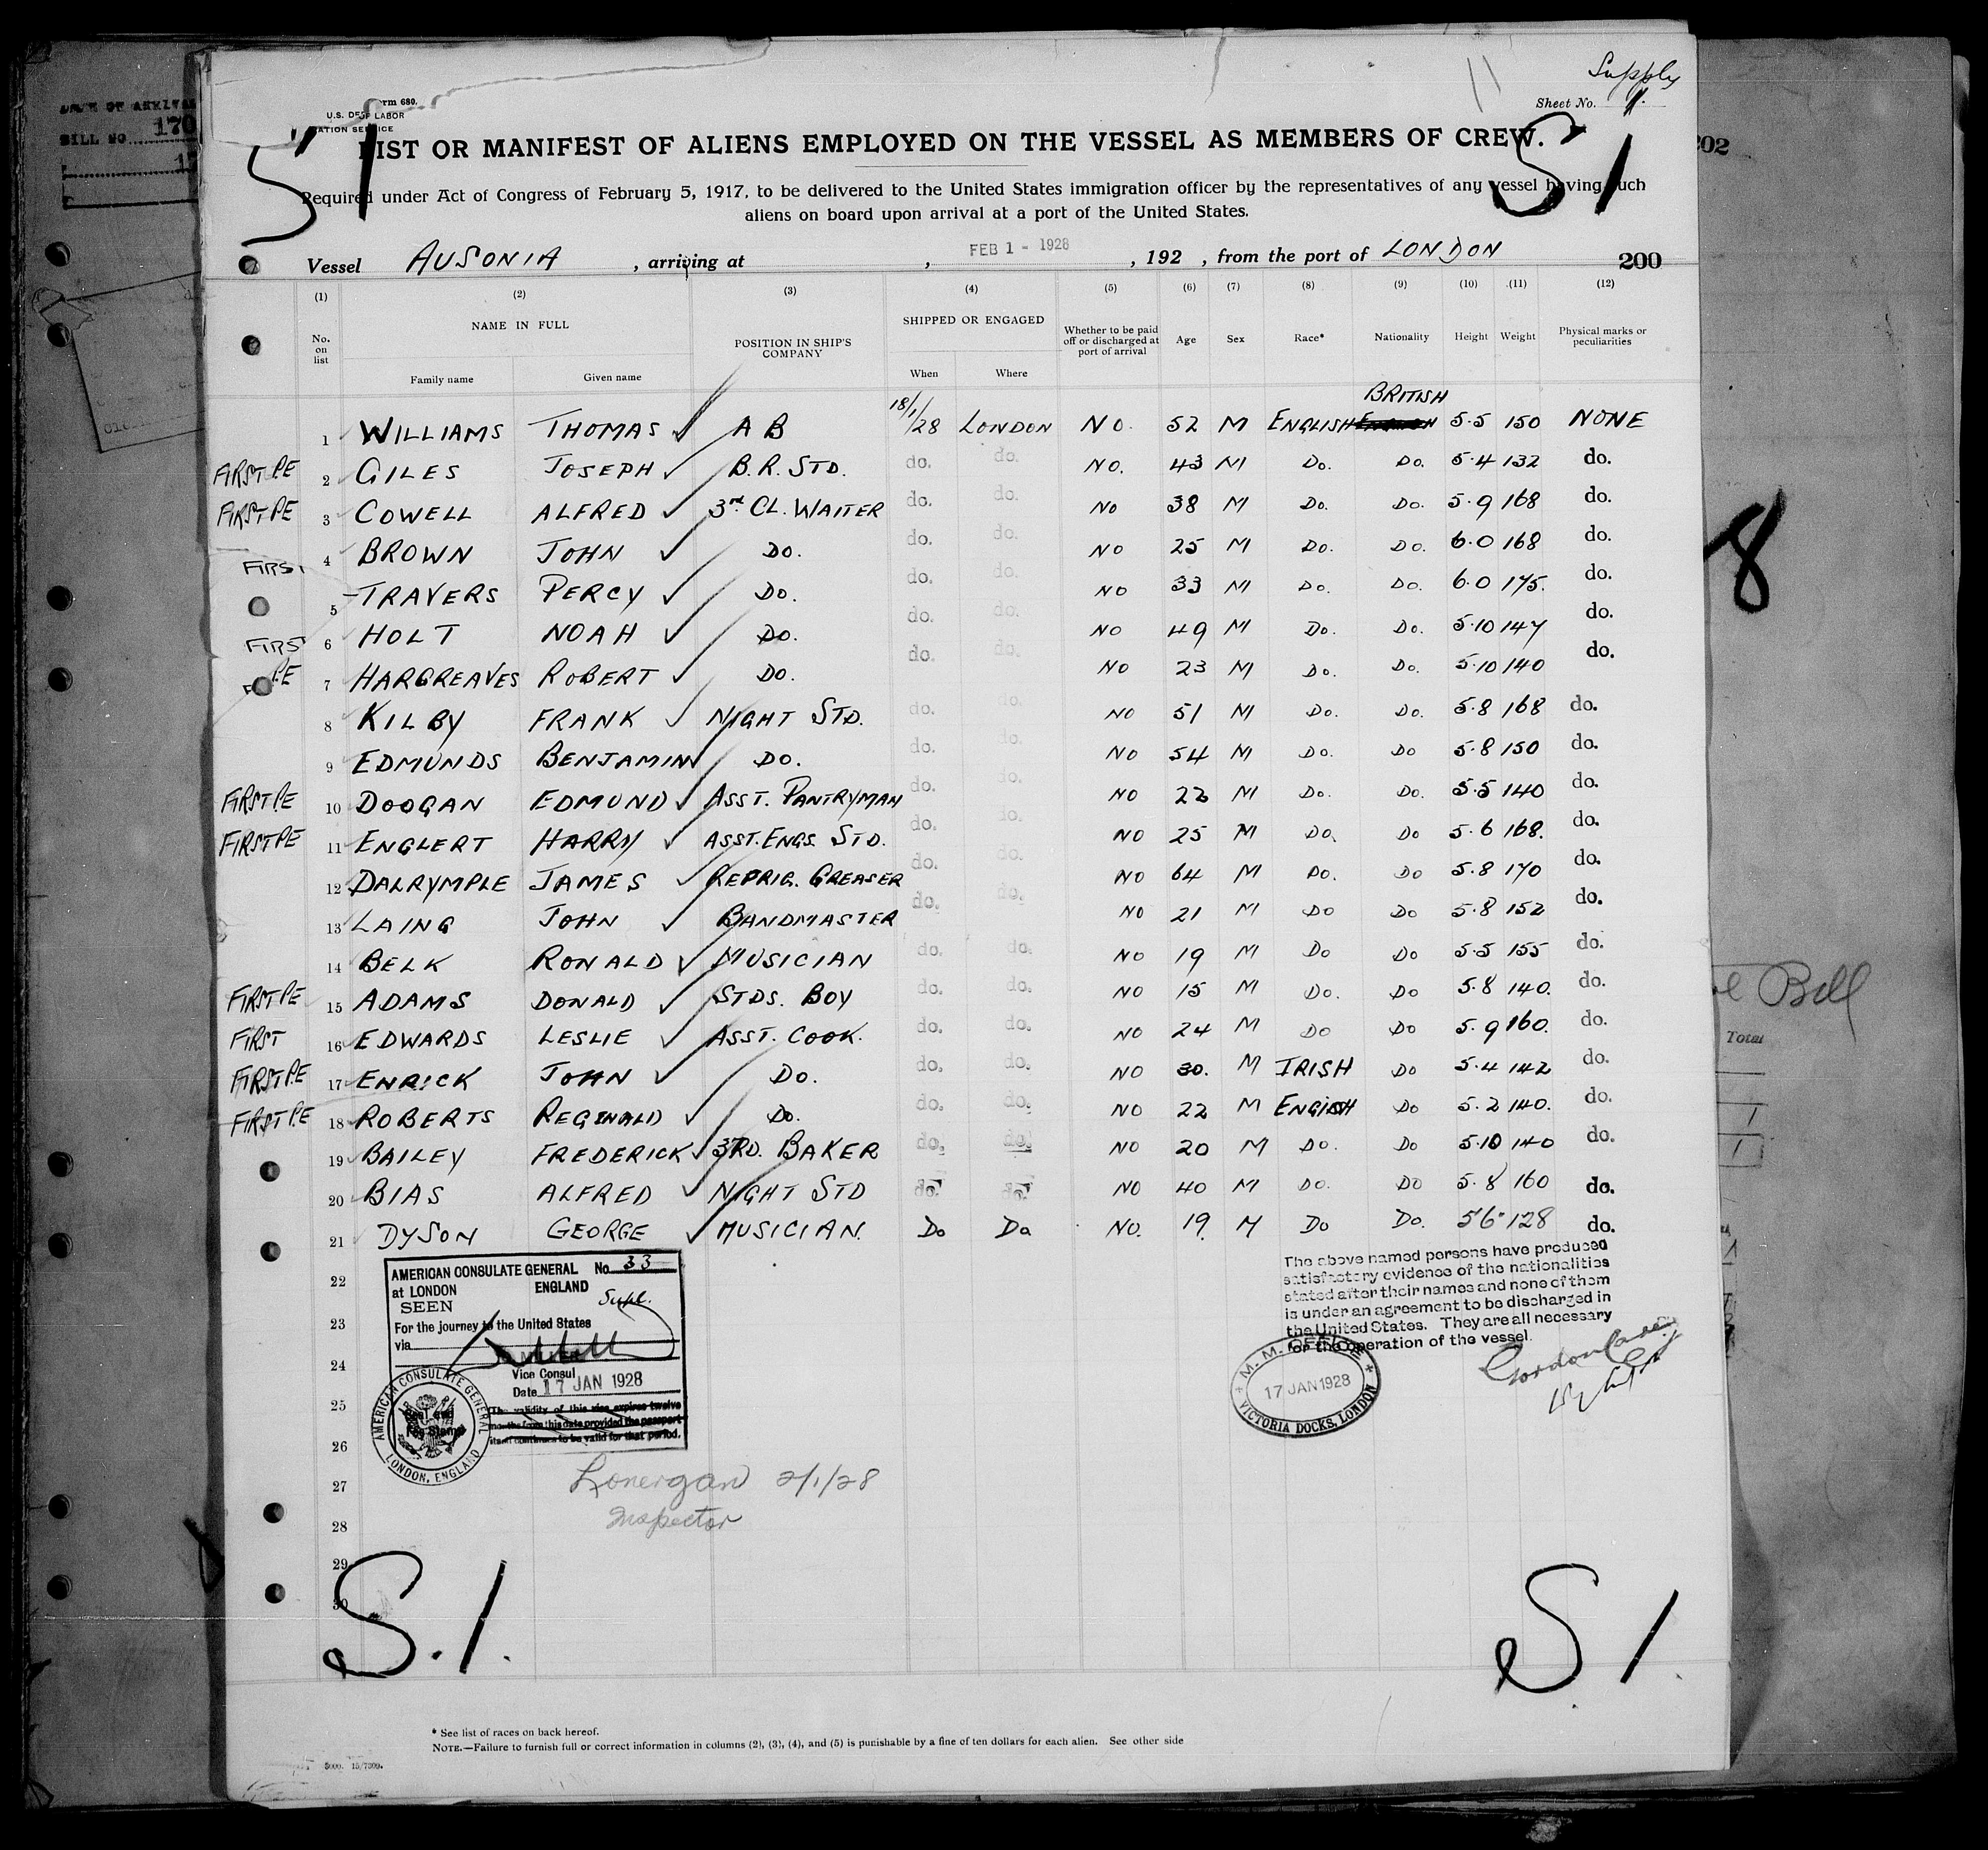 Supply
Sheet No. 1.
rm 680.
U.S. DEP LABOR
ATION SERVICE
S1
S1
LIST OR MANIFEST OF ALIENS EMPLOYED ON THE VESSEL AS MEMBERS OF CREW.
Required under Act of Congress of February 5, 1917, to be delivered to the United States immigration officer by the representatives of any vessel having such
aliens on board upon arrival at a port of the United States.
Vessel AUSONIA, arriving at , FEB 1 - 1928, 192 , from the port of LONDON 200
(1) (2) (3) (4) (5) (6) (7) (8) (9) (10) (11) (12)
No. on list NAME IN FULL POSITION IN SHIP'S COMPANY SHIPPED OR ENGAGED Whether to be paid off or discharged at port of arrival Age Sex Race* Nationality Height Weight Physical marks or peculiarities
Family name Given name When Where
BRITISH
1 WILLIAMS THOMAS A B 18/1/28 LONDON NO. 52 M ENGLISH 5.5 150 NONE
FIRST P.E 2 GILES JOSEPH B.R. STD. do. do. NO. 43 M Do. Do. 5.4 132 do.
FIRST P.E 3 COWELL ALFRED 3rd CL. WAITER do. do. NO 38 M Do. Do. 5.9 168 do.
FIRST 4 BROWN JOHN Do. do. do. NO 25 M Do. Do. 6.0 168 do.
5 TRAVERS PERCY Do. do. do. NO 33 M Do. Do. 6.0 175. do.
FIRS 6 HOLT NOAH Do. do. do. NO 49 M Do. Do. 5.10 147 do.
P.E 7 HARGREAVES ROBERT Do. do. do. NO 23 M Do. Do. 5.10 140 do.
8 KILBY FRANK NIGHT STD. do. do. NO 51 M Do. Do. 5.8 168 do.
9 EDMUNDS BENJAMIN Do. do. do. NO 54 M Do. Do 5.8 150 do.
FIRST P.E 10 DOOGAN EDMUND ASST. PANTRYMAN do. do. NO 22 M Do. Do. 5.5 140 do.
FIRST P.E 11 ENGLERT HARRY ASST. ENGS. STD. do. do. NO 25 M Do. Do 5.6 168. do.
12 DALRYMPLE JAMES REFRIG. GREASER do. do. NO 64 M Do. Do 5.8 170 do.
13 LAING JOHN BANDMASTER do. do. NO 21 M Do Do 5.8 152 do.
14 BELK RONALD MUSICIAN do. do. NO 19 M Do Do 5.5 155 do.
FIRST P.E 15 ADAMS DONALD STDS. BOY do. do. NO 15 M Do. Do 5.8 140. do.
FIRST 16 EDWARDS LESLIE ASST. COOK. do. do. NO 24 M Do Do 5.9 160. do.
FIRST P.E 17 ENRICK JOHN Do. do. do. NO 30. M IRISH Do 5.4 142 do.
FIRST P.E 18 ROBERTS REGINALD Do. do. do. NO 22 M ENGISH Do 5.2 140. do.
19 BAILEY FREDERICK 3RD. BAKER do. do. NO 20 M Do. Do 5.10 140 do.
20 BIAS ALFRED NIGHT STD do. do. NO 40 M Do. Do 5.8 160 do.
21 DYSON GEORGE MUSICIAN. Do Do NO. 19 M Do Do. 5'6" 128 do.
22
23
24
25
26
27
28
29
30
AMERICAN CONSULATE GENERAL No. 33
at LONDON ENGLAND
SEEN Supl.
For the journey to the United States
via
Vice Consul
Date 17 JAN 1928
The validity of this visa expires twelve
months from this date provided the passport
itself continues to be valid for that period.
AMERICAN CONSULATE GENERAL
LONDON, ENGLAND
The above named persons have produced
satisfactory evidence of the nationalities
stated after their names and none of them
is under an agreement to be discharged in
the United States. They are all necessary
for the operation of the vessel.
M. M. OFFICE
17 JAN 1928
VICTORIA DOCKS, LONDON
Lonergan 2/1/28
Inspector
S.1.
S1.
* See list of races on back hereof.
NOTE.—Failure to furnish full or correct information in columns (2), (3), (4), and (5) is punishable by a fine of ten dollars for each alien. See other side
DATE OF ARRIVAL
BILL NO 170
17
202
8
Bell
Total
1
1